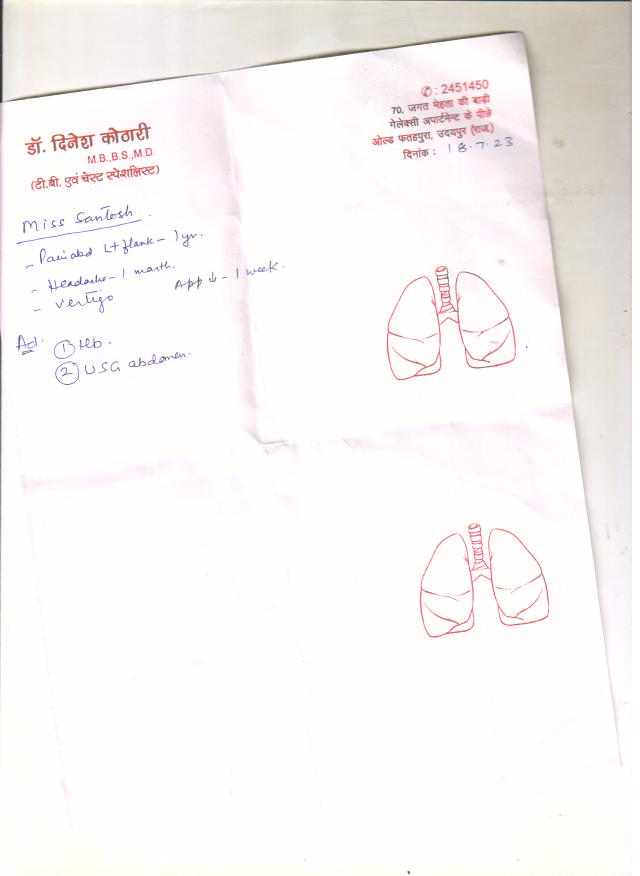 डॉ. दिनेश कोठारी
M.B.,B.S.,M.D.
(टी.बी. एवं चेस्ट स्पेशलिस्ट)
✆ : 2451450
70, जगत मेहता की बाड़ी
गेलेक्सी अपार्टमेन्ट के पीछे
ओल्ड फतहपुरा, उदयपुर (राज.)
दिनांक : 18.7.23
Miss Santosh
- Pain abd. Lt flank - 1 yr.
- Headache - 1 month.
- Vertigo App ↓ - 1 week.
Ad.
① Hb.
② USG abdomen.